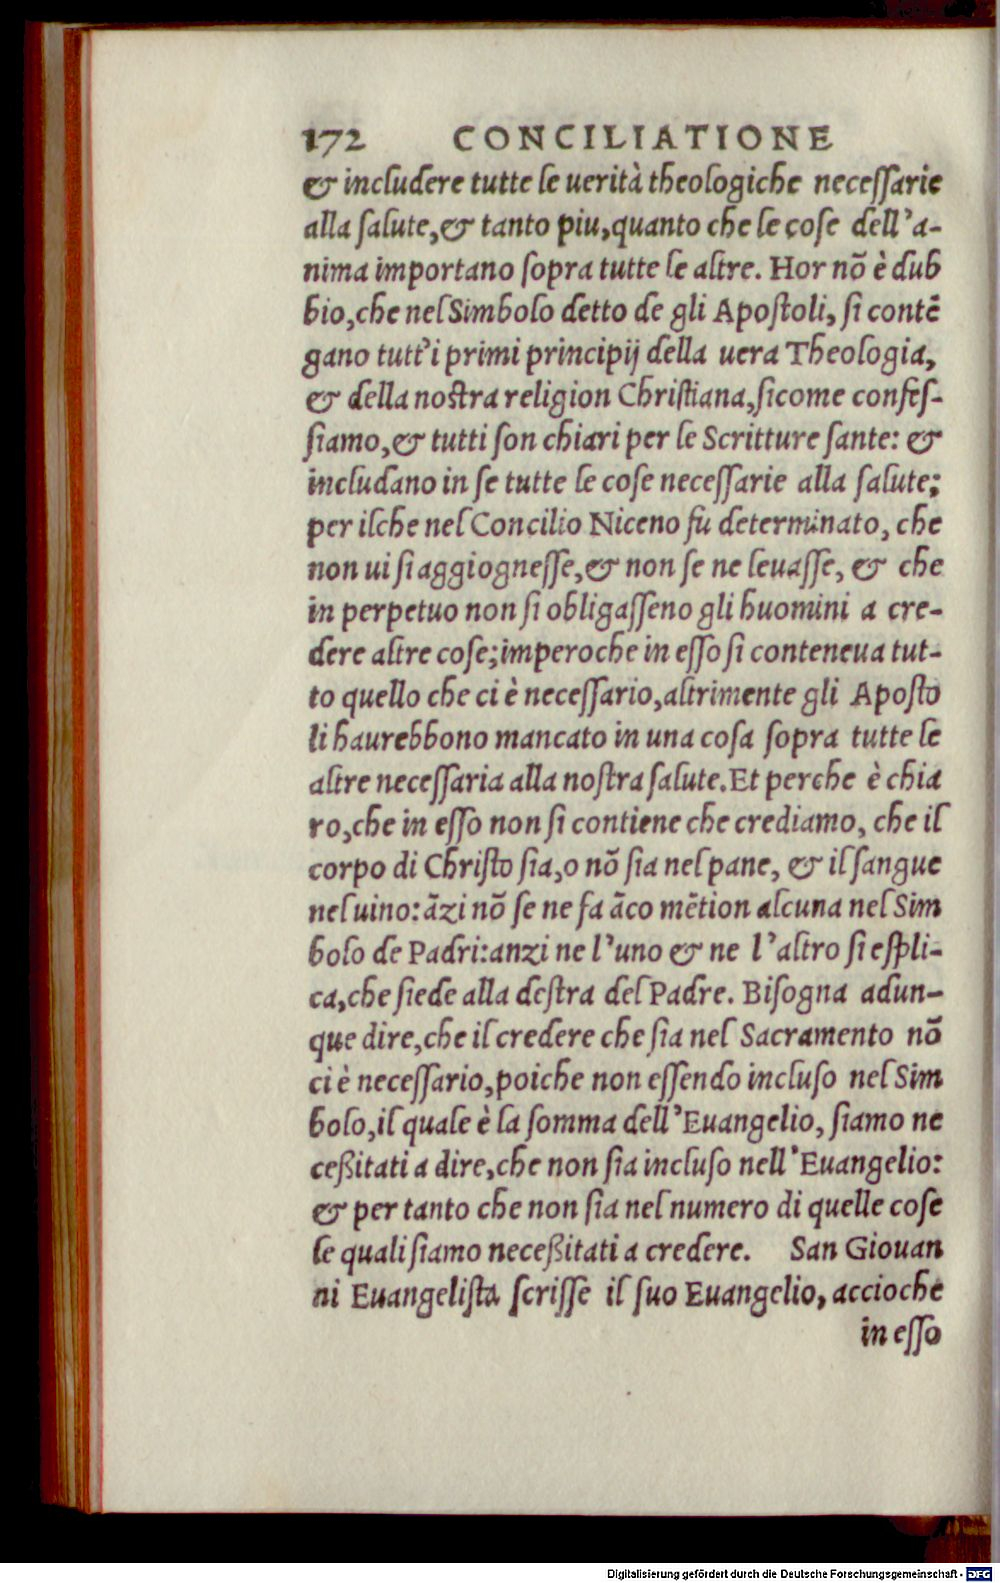 172 CONCILIATIONE
& includere tutte le uerità theologiche necessarie
alla salute,& tanto piu,quanto che le cose dell'a-
nima importano sopra tutte le altre. Hor nõ è dub
bio,che nel Simbolo detto de gli Apostoli, si contẽ
gano tutt'i primi principij della uera Theologia,
& della nostra religion Christiana,sicome confes-
siamo,& tutti son chiari per le Scritture sante: &
includano in se tutte le cose necessarie alla salute;
per ilche nel Concilio Niceno fu determinato, che
non ui si aggiognesse,& non se ne leuasse, & che
in perpetuo non si obligasseno gli huomini a cre-
dere altre cose;imperoche in esso si conteneua tut-
to quello che ci è necessario,altrimente gli Aposto
li haurebbono mancato in una cosa sopra tutte le
altre necessaria alla nostra salute.Et perche è chia
ro,che in esso non si contiene che crediamo, che il
corpo di Christo sia,o nõ sia nel pane, & il sangue
nel uino:ãzi nõ se ne fa ãco mẽtion alcuna nel Sim
bolo de Padri:anzi ne l'uno & ne l'altro si espli-
ca,che siede alla destra del Padre. Bisogna adun-
que dire,che il credere che sia nel Sacramento nõ
ci è necessario,poiche non essendo incluso nel Sim
bolo,il quale è la somma dell'Euangelio, siamo ne
ceßitati a dire,che non sia incluso nell'Euangelio:
& per tanto che non sia nel numero di quelle cose
le quali siamo neceßitati a credere. San Giouan
ni Euangelista scrisse il suo Euangelio, accioche
in esso
Digitalisierung gefördert durch die Deutsche Forschungsgemeinschaft - DFG